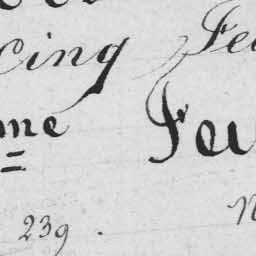 cing Fe
me Feu
239. N